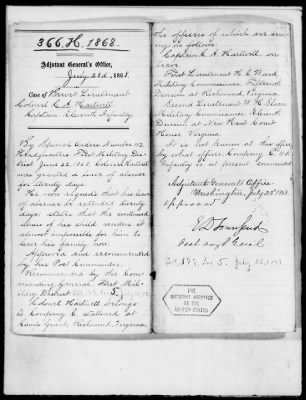 366. H. 1868.
Adjutant General's Office,
July 23d, 1868.
Case of Brevet Lieutenant
Colonel C. A. Hartwell
Captain Eleventh Infantry.
By Special Orders Number 112
Headquarters First Military Dis-
trict June 22 1868 Colonel Hartwell
was granted a leave of absence
for twenty days.
He now requests that his leave
of absence be extended twenty
days; states that the continued
illness of his child renders it
almost impossible for him to
leave his family now.
Approved and recommended
by his Post Commander.
Recommended by the Com-
manding General First Mili-
tary District
Colonel Hartwell belongs
to Company C. stationed at
Camp Grant, Richmond, Virginia,
The officers of which are as
follows:
Captain C. A. Hartwell, on
leave
First Lieutenant H. C. Ward
Military Commissioner, Fifteenth
Division at Richmond, Virginia
Second Lieutenant W. H. Clean
Military Commissioner, Eleventh
Division at New Kent Court
House, Virginia.
It is not known at this office
by what officer Company C. 11th
Infantry is at present commanded
Adjutant General's Office
Washington, July 23d 1868.
approved
E D Townsend
Asst Adjt Genl
THE
NATIONAL ARCHIVES
OF THE
UNITED STATES